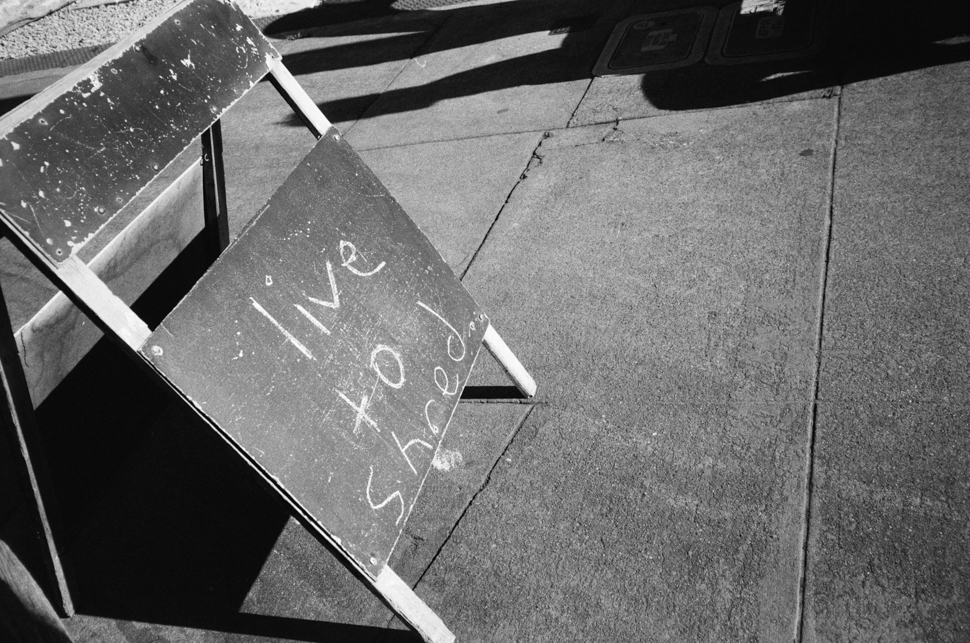 live
to
shred